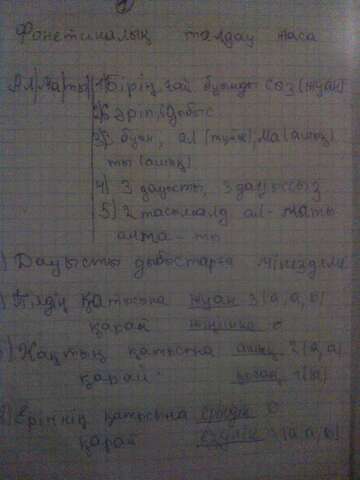 Фонетикалық талдау жаса
Алматы 1) Бірің,ғай буынды сөз (жуан)
2) 6 әріп, 6 дыбыс
3) 3 буын, ал (тұйық), ма (ашық)
ты (ашық)
4) 3 дауысты, 3 дауыссыз
5) 2 тасымалд ал - маты
алма - ты
Дауысты дыбыстарға мінездеме
Тілдің қатысына жуан 3 (а, а, ы)
қарай жіңішке 0
Жақтың қатысына ашық 2 (а, а)
қарай қысаң 1 (ы)
Еріннің қатысына еріндік 0
қарай езулік 3 (а, а, ы)